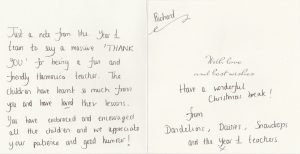 Just a note from the Year 1
team to say a massive 'THANK
YOU' for being a fun and
friendly teacher. The
children have learnt so much from
you and have loved their lessons.
You have embraced and encouraged
all the children and we appreciate
your patience and good humour!
Richard
With love
and best wishes
Have a wonderful
Christmas break!
from
Dandelions, Daisies, Snowdrops
and the Year 1 teachers